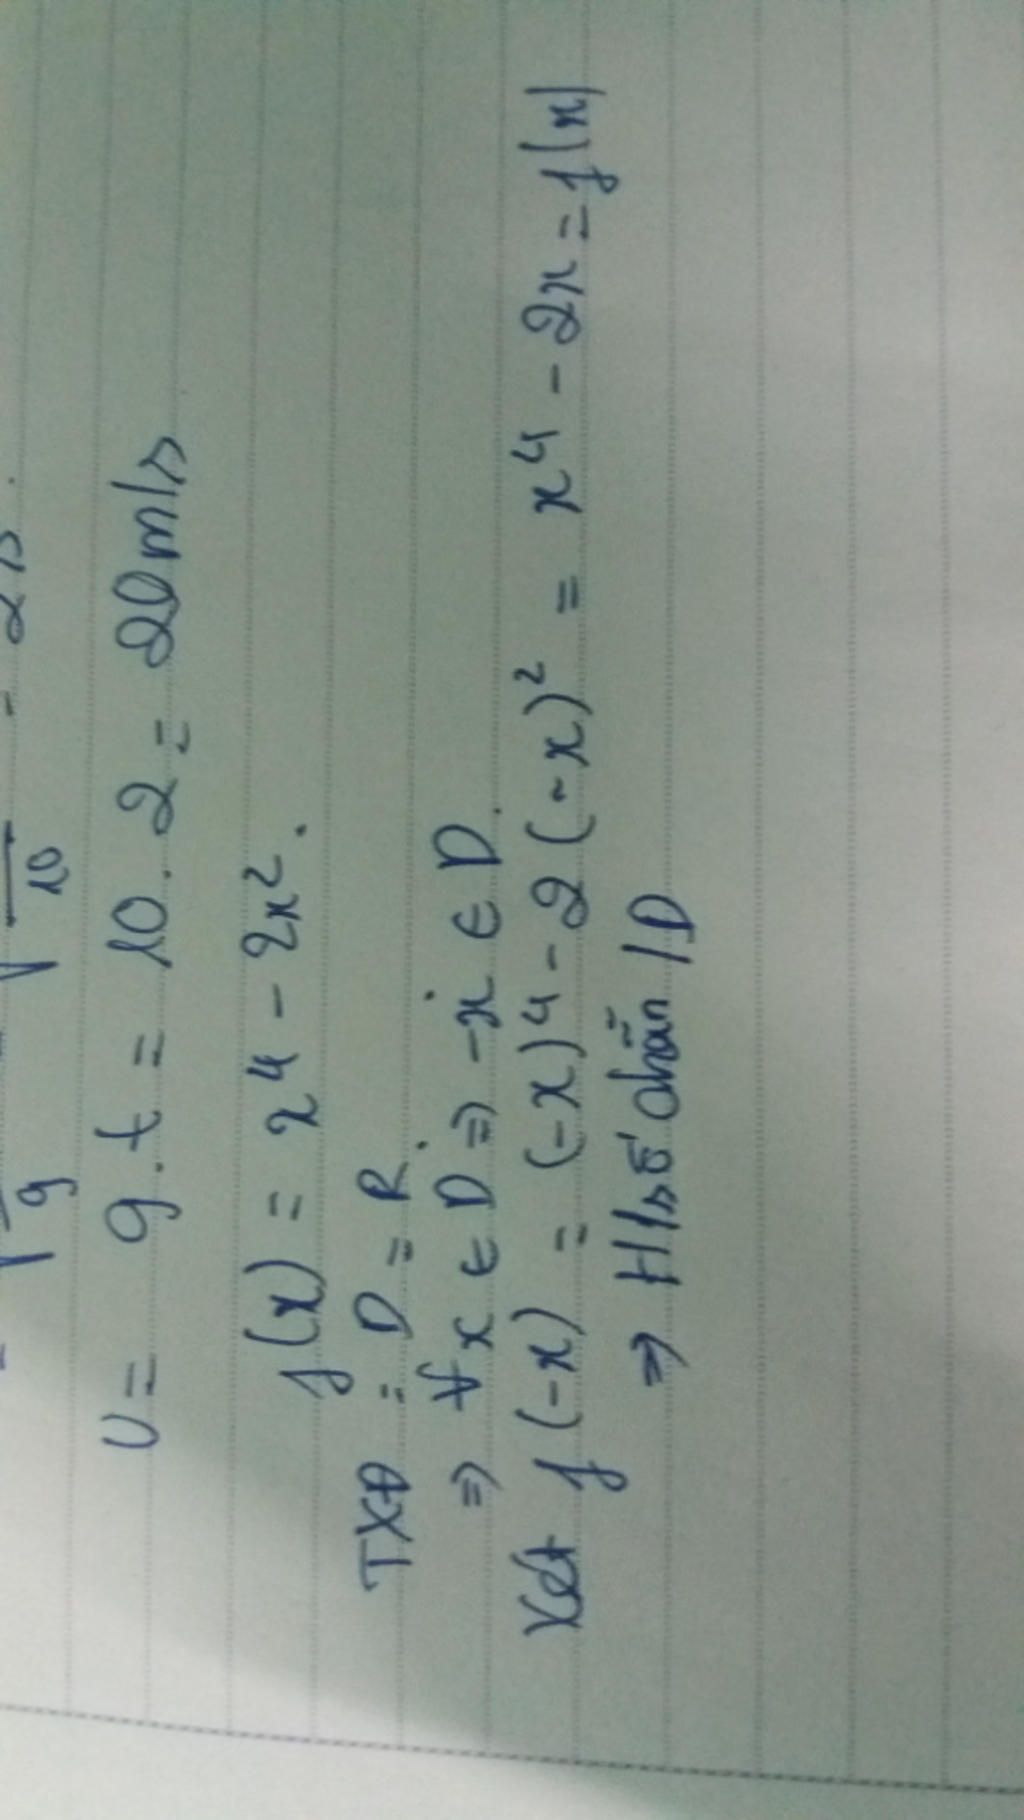 g 10 = 2s.
v = g.t = 10.2 = 20m/s
f(x) = x⁴ - 2x².
TXĐ : D = R.
⇒ ∀x ∈ D ⇒ -x ∈ D.
Xét f(-x) = (-x)⁴ - 2(-x)² = x⁴ - 2x = f(x)
⇒ H/số chẵn /D